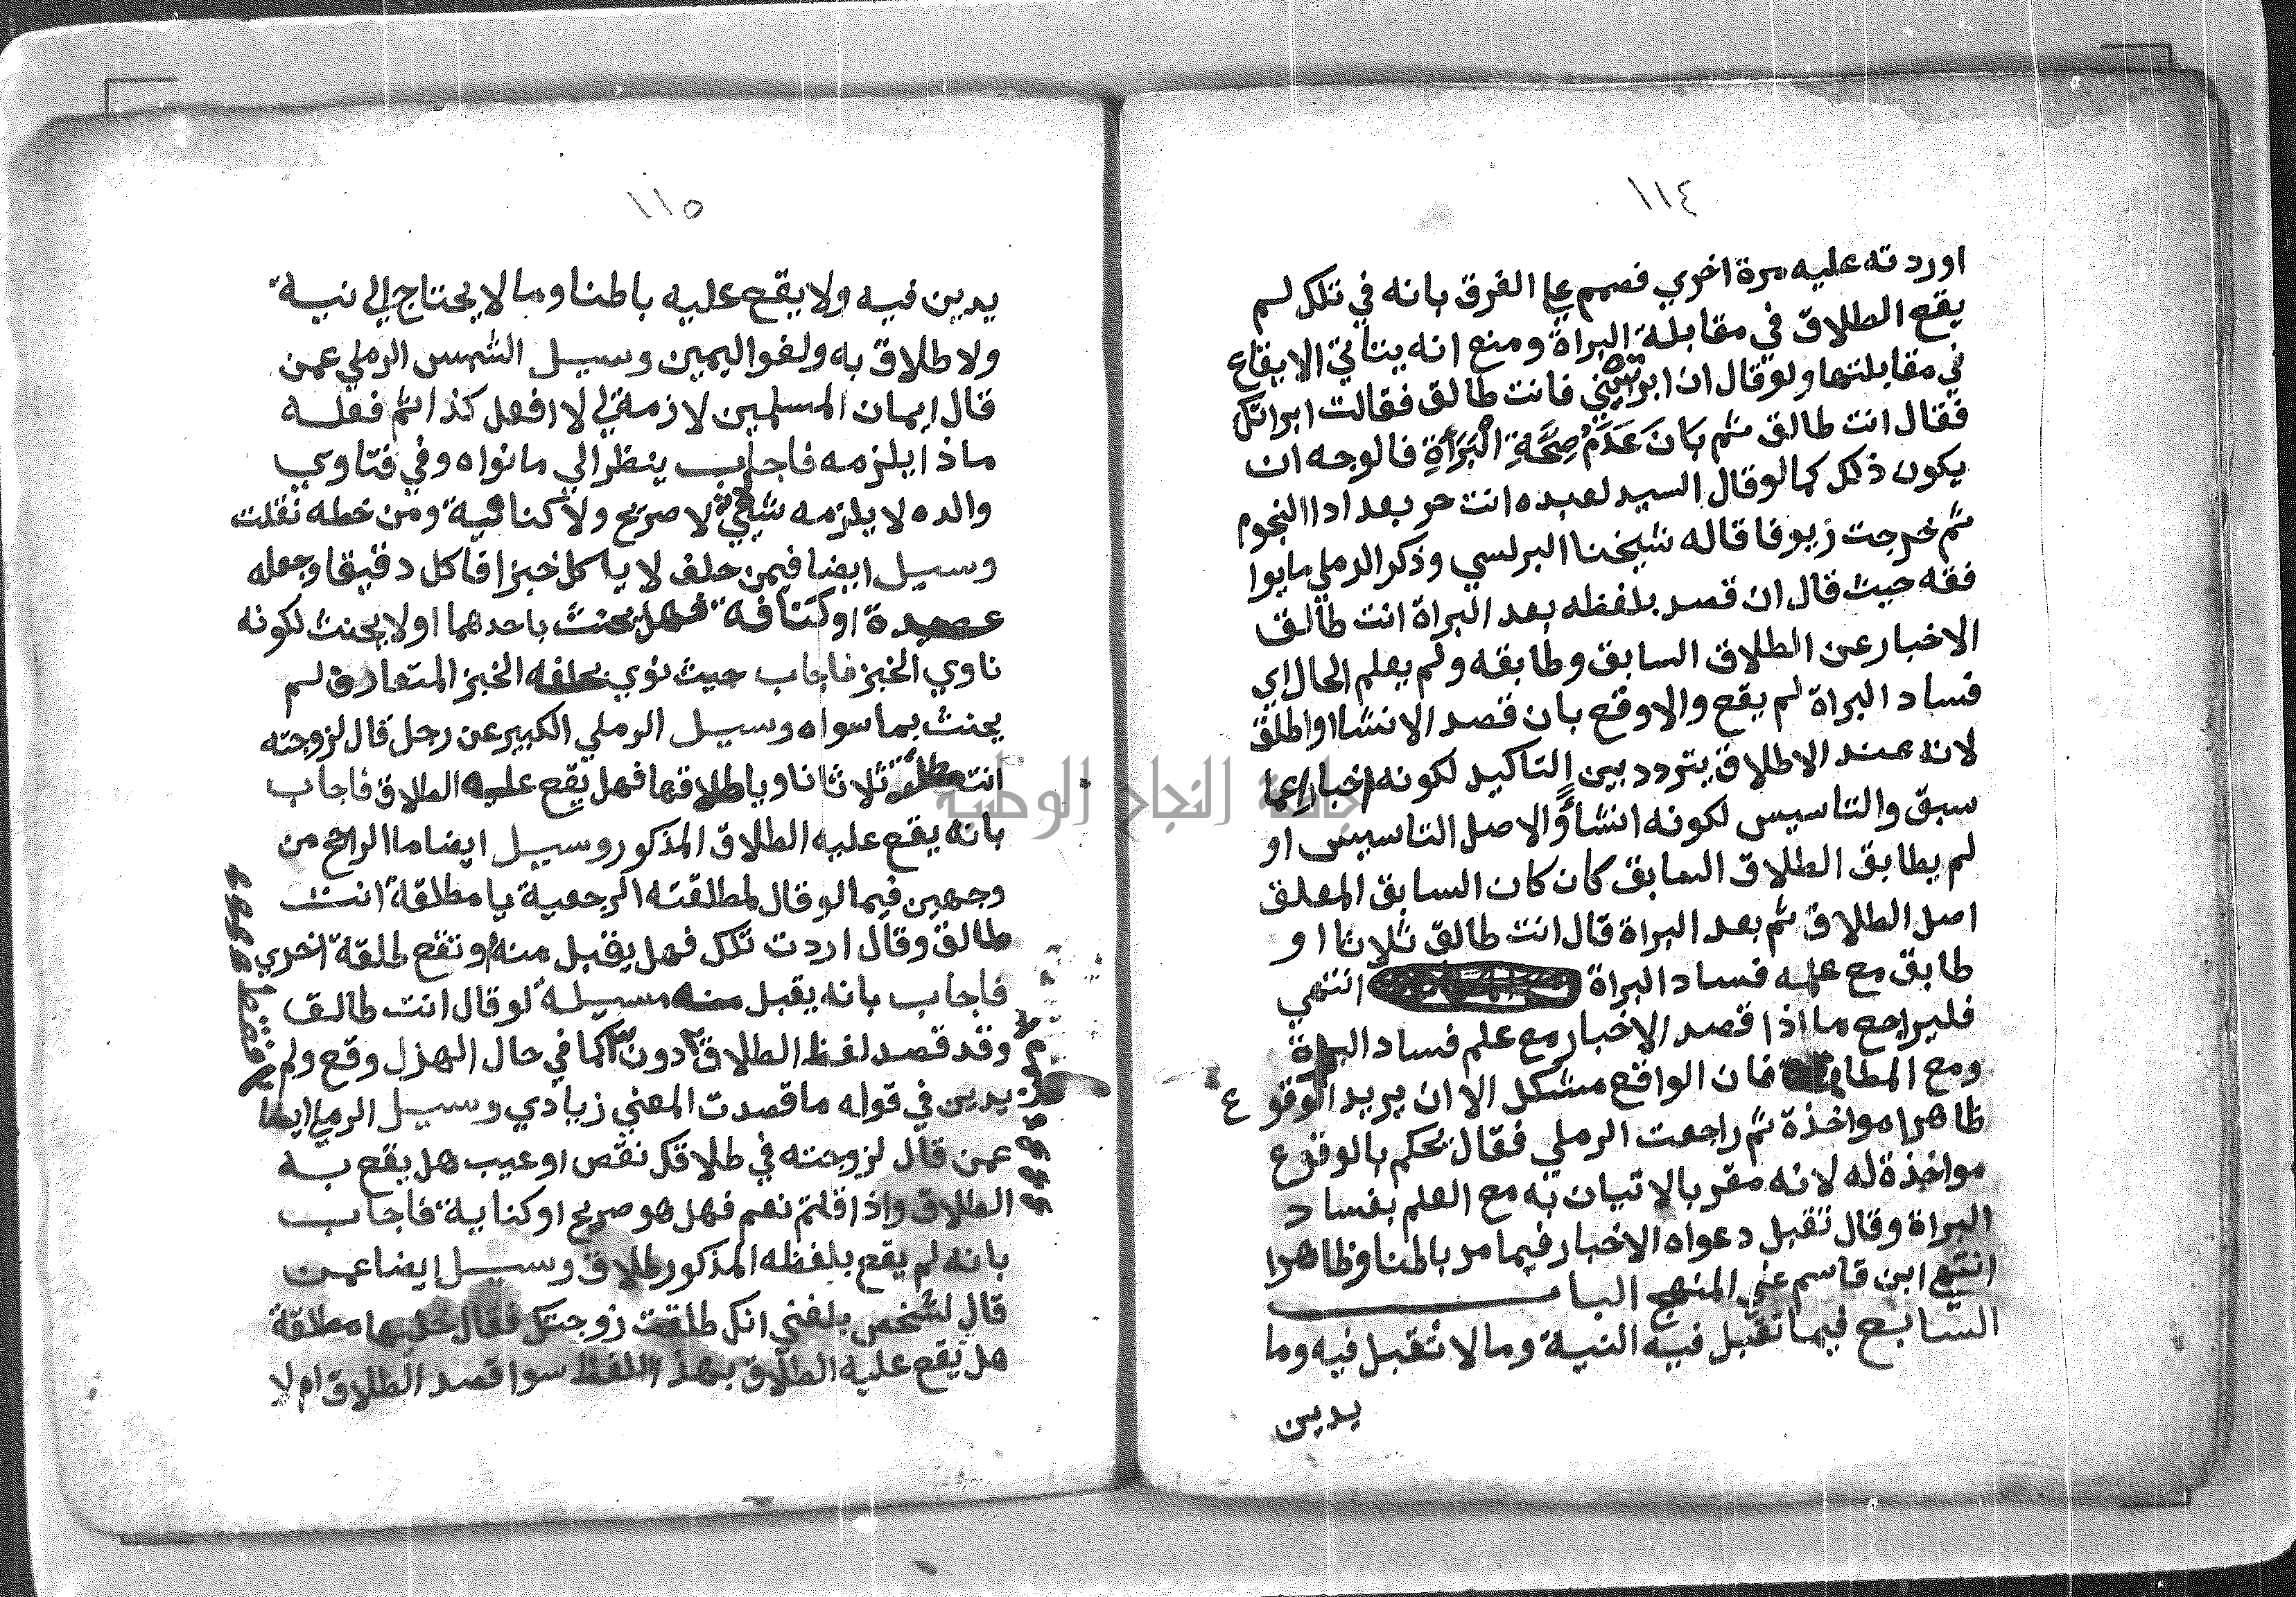 ١١٤
اوردته عليه مرة اخري فصمم علي الفرق بانه في تلك لم
يقع الطلاق في مقابلة البراة ومنع انه يتاتي الايقاع
في مقابلتها ولو قال ان ابرتيني فانت طالق فقالت ابراتك
فقال انت طالق ثم بَانَ عَدَمُ صِحَّةِ الْبَرَأَةِ فالوجه ان
يكون ذلك كما لو قال السيد لعبده انت حر بعد ادا النجوم
ثم خرجت زيوفا قاله شيخنا البرلسي وذكر الرملي ما يوا
فقه حيث قال ان قصد بلفظه بعد البراة انت طالق
الاخبار عن الطلاق السابق وطابقه ولم يعلم الحال اي
فساد البراة لم يقع والا وقع بان قصد الانشا او اطلق
لانه عند الاطلاق يتردد بين التاكيد لكونه اخبارا عما
سبق والتاسيس لكونه انشأ والاصل التاسيس او
لم يطابق الطلاق السابق كان كان السابق المعلق
اصل الطلاق ثم بعد البراة قال انت طالق ثلاثا او
طابق مع علمه فساد البراة انتهي
فليراجع ما اذا قصد الاخبار مع علم فساد البراة
ومع المطابقة فان الواقع مشكل الا ان يريد الوقوع
ظاهرا مواخذة ثم راجعت الرملي فقال نحكم بالوقوع
مواخذة له لانه مقر بالاتيان به مع العلم بفساد
البراة وقال تقبل دعواه الاخبار فيما مر باطنا وظاهرا
انتهي ابن قاسم علي المنهج البــاب
السابع فيما تقبل فيه النية وما لا تقبل فيه وما
يدين
١١٥
يدين فيه ولا يقع عليه باطنا وما لا يحتاج الي نية
ولا طلاق به ولغو اليمين وسيل الشمس الرملي عمن
قال ايمان المسلمين لازمة لي لا افعل كذا ثم فعله
ماذا يلزمه فاجاب ينظر الي ما نواه وفي فتاوي
والده لا يلزمه شي لا صريح ولا كناية ومن خطه نقلت
وسيل ايضا فيمن حلف لا ياكل خبزا فاكل دقيقا وجعله
عصيدة او كنافة فهل يحنث باحدهما او لا يحنث لكونه
ناوي الخبز فاجاب حيث نوي بحلفه الخبز المتعارف لم
يحنث بما سواه وسيل الرملي الكبير عن رجل قال لزوجته
انت ثلاثا ناويا طلاقها فهل يقع عليه الطلاق فاجاب
بانه يقع عليه الطلاق المذكور وسيل ايضا ما الراجح من
وجهين فيما لو قال لمطلقته الرجعية يا مطلقة انت
طالق وقال اردت تلك فهل يقبل منه او تقع طلقة اخري
فاجاب بانه يقبل منه مسيلة لو قال انت طالق
وقد قصد لفظ الطلاق دون كما في حال الهزل وقع ولم
يدين في قوله ما قصدت المعني زيادي وسيل الرملي ايضا
عمن قال لزوجته في طلاقك نقص او عيب هل يقع به
الطلاق واذا قلتم نعم فهل هو صريح او كناية فاجاب
بانه لم يقع بلفظه المذكور طلاق وسيل ايضا عمن
قال لشخص بلغني انك طلقت زوجتك فقال خليها مطلقة
هل يقع عليه الطلاق بهذا اللفظ سوا قصد الطلاق ام لا
جامعة النجاح الوطنية